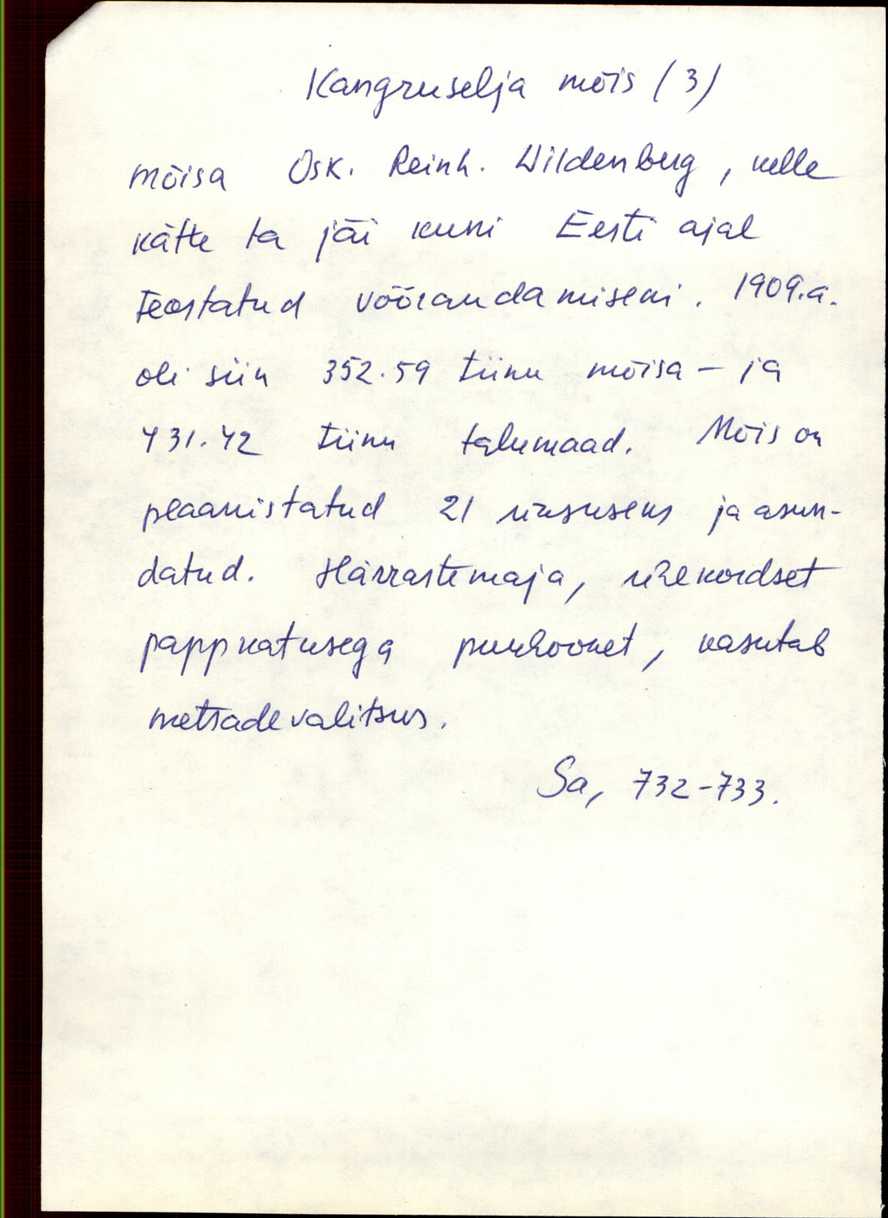 Kangruselja mõis (3)
mõisa Osk. Reinh. Wildenberg, kelle
kätte ta jäi kuni Eesti ajal
teostatud võõrandamiseni. 1909.a.
oli siin 352.59 tiinu mõisa- ja
431.42 tiinu talumaad. Mõis on
plaanistatud 21 üksuseks ja asun-
datud. Härrastemaja, ühekordset
pappkatusega puuhoonet, kasutab
metsadevalitsus.
Sa, 732-733.